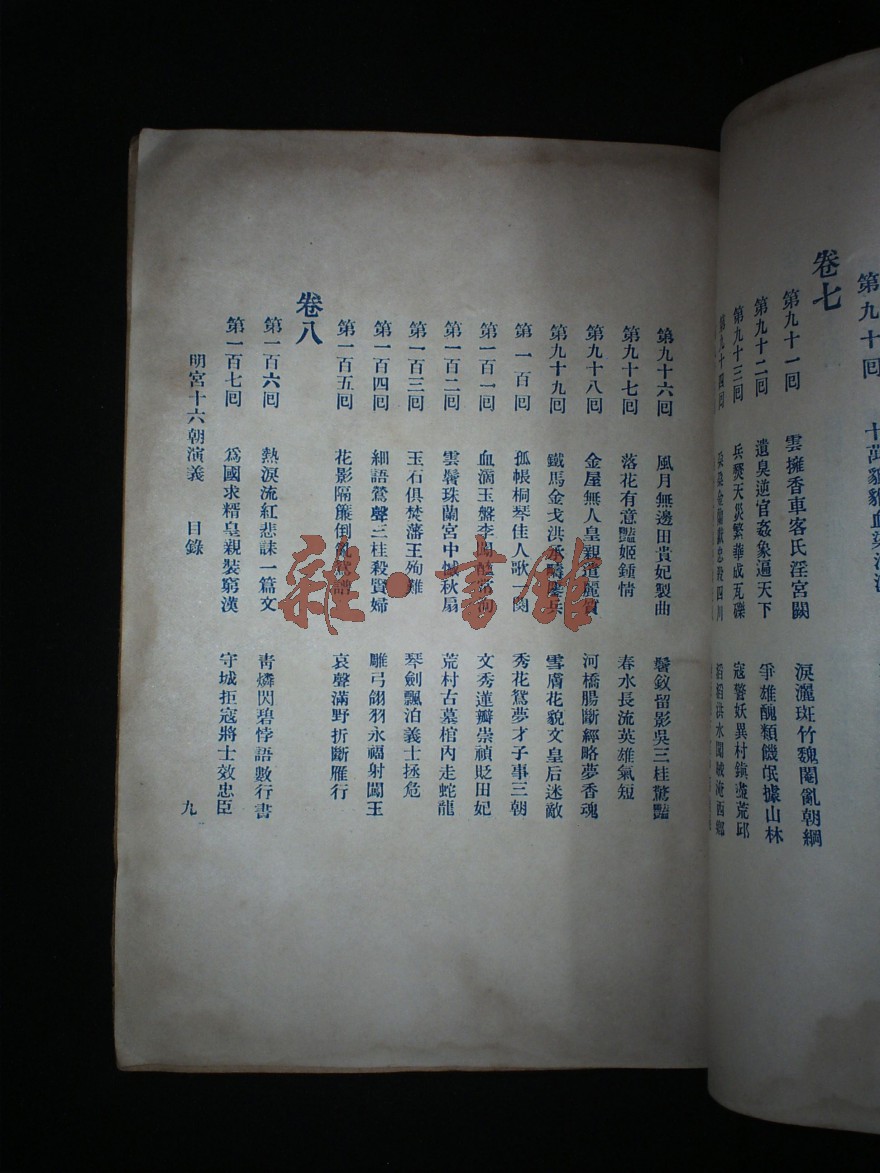 第九十回 十萬貔貅血染
卷七
第九十一回 雲擁香車客氏淫宮闕 淚灑斑竹魏閹亂朝綱
第九十二回 遺臭逆官姦象遍天下 爭雄醜類饑氓據山林
第九十三回 兵燹天災繁華成瓦礫 寇警妖異村鎮盡荒邱
第九十四回 獻忠殺四川 滔滔洪水
第九十六回 風月無邊田貴妃製曲 鬢釵留影吳三桂驚豔
第九十七回 落花有意豔姬鍾情 春水長流英雄氣短
第九十八回 金屋無人皇親遺麗質 河橋腸斷經略夢香魂
第九十九回 鐵馬金戈洪承疇鏖兵 雪膚花貌文皇后迷敵
第一百回 孤帳桐琴佳人歌一闋 秀花鴛夢才子事三朝
第一百一回 血滴玉盤李闖 文秀蓮瓣崇禎貶田妃
第一百二回 雲鬢珠蘭宮中憾秋扇 荒村古墓棺內走蛇龍
第一百三回 玉石俱焚藩王殉難 琴劍飄泊義士拯危
第一百四回 細語鶯聲三桂殺賢婦 雕弓翎羽永福射闖王
第一百五回 花影隔簾倒亂鴛譜 哀聲滿野折斷雁行
卷八
第一百六回 熱淚流紅悲誄一篇文 青燐閃碧悖語數行書
第一百七回 爲國求糈皇親裝窮漢 守城拒寇將士效忠臣
明宮十六朝演義 目錄 九
雜·書館